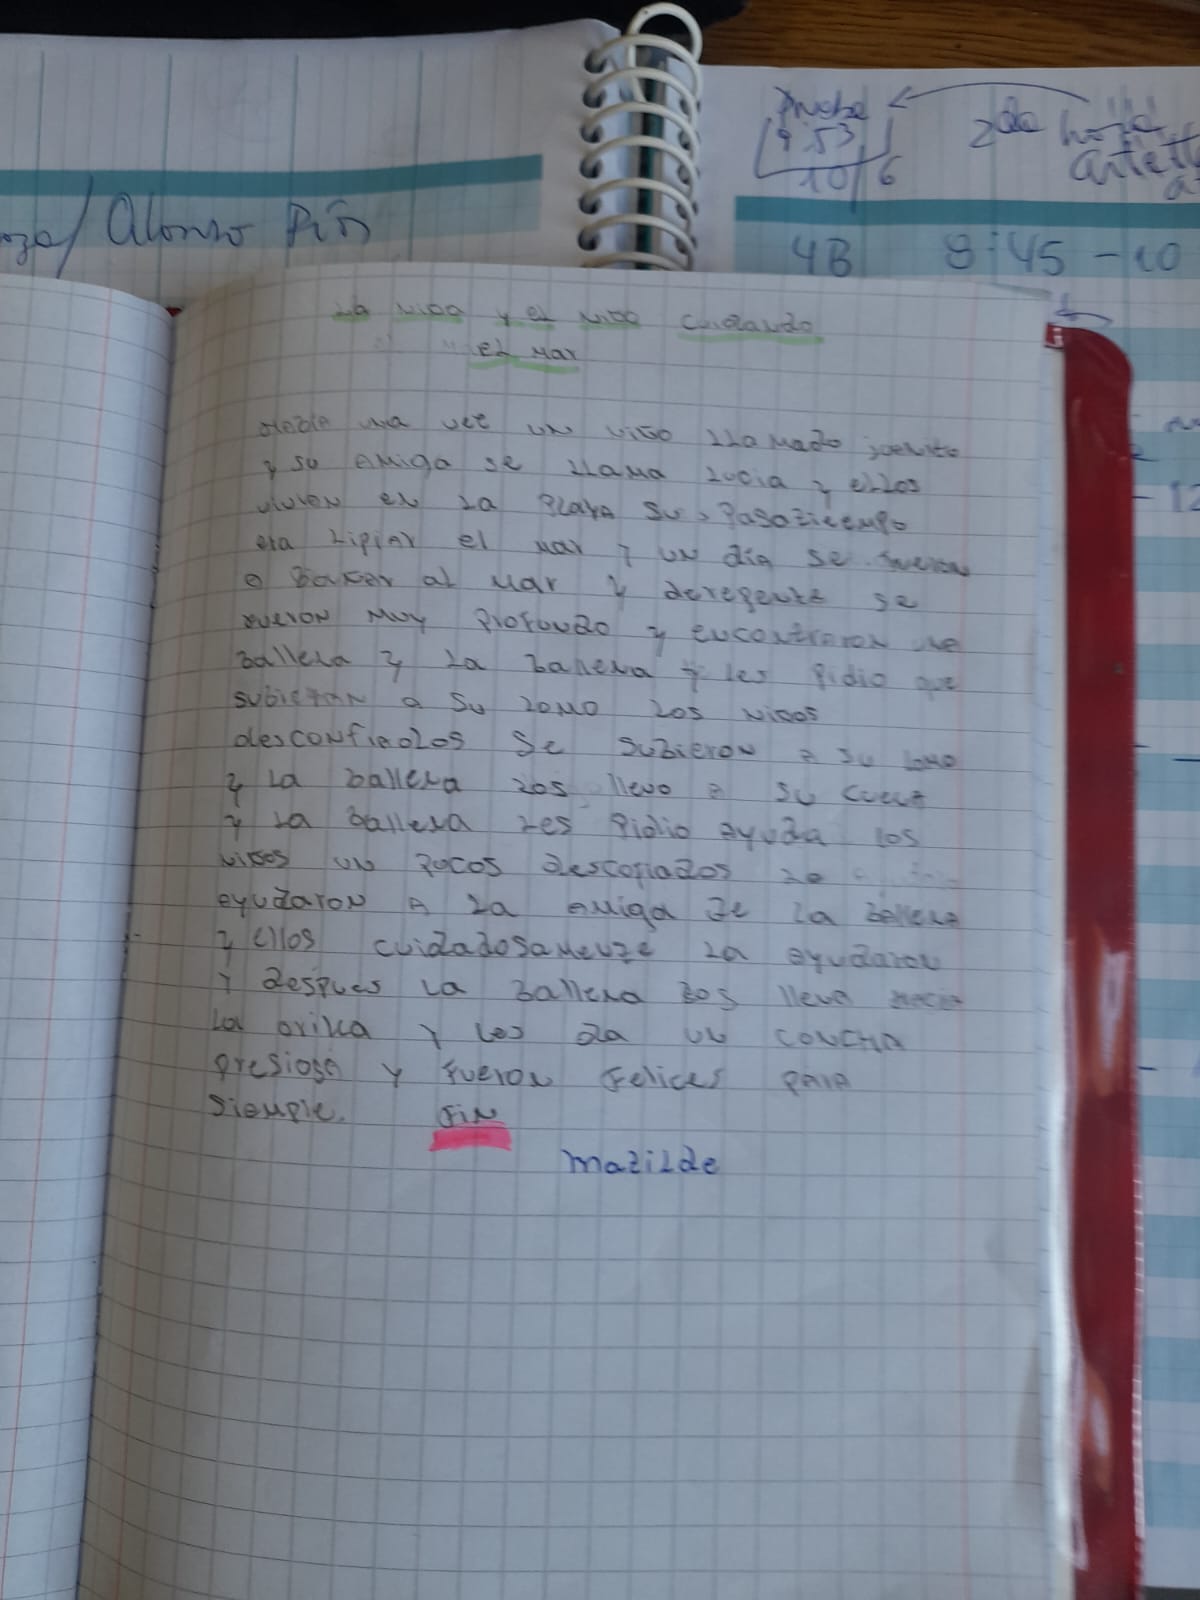 Alonso
Prueba
9:53
10/6
2da
4B 8:45 - 10
La niña y el niño cuidando
el mar
Había una vez un niño llamado juanito
y su amiga se llama Lucia y ellos
viven en la playa su pasatiempo
era lipiar el mar y un día se fueron
a bucear al mar y derepente se
fueron muy profundo y encontraron una
ballena y la ballena les pidio que
subieran a su lomo los niños
desconfiados se subieron a su lomo
y la ballena los llevo a su cueva
y la ballena les pidio ayuda los
niños un pocos descofiados le
ayudaron a la amiga de la ballena
y ellos cuidadosamente la ayudaron
y despues la ballena los lleva hacia
la orilla y les da un concha
presiosa y fueron felices para
siempre. Fin
matilde
12